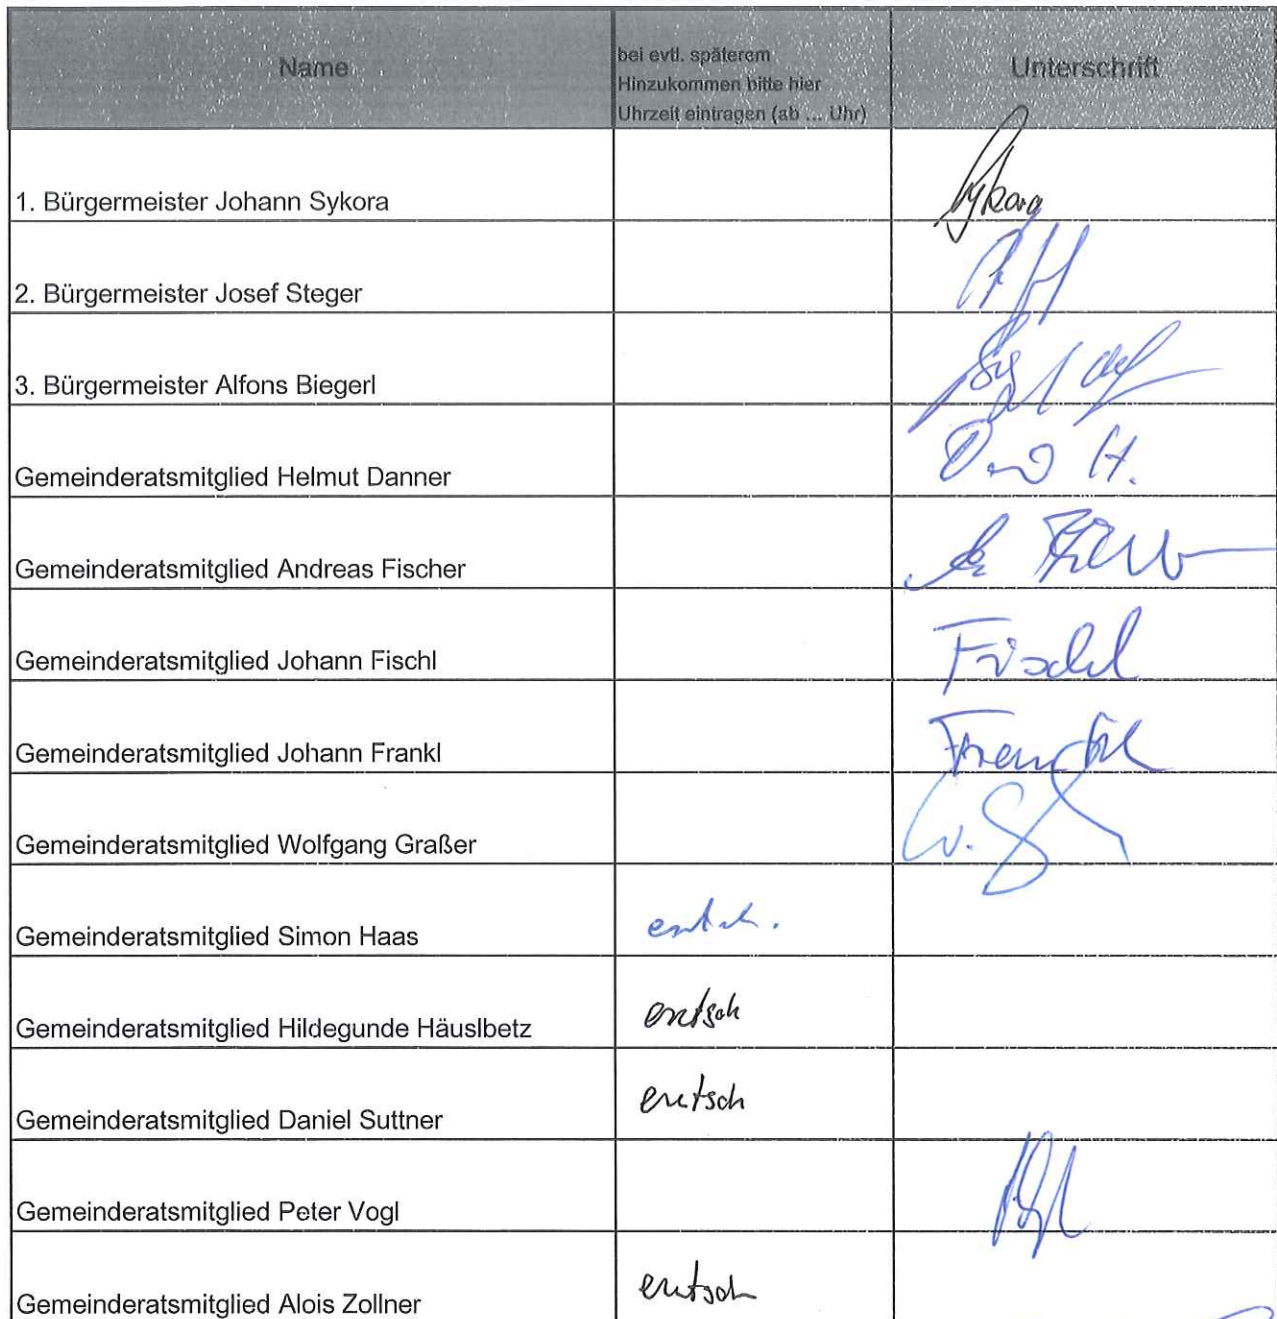 Name
bei evtl. späterem
Hinzukommen bitte hier
Uhrzeit eintragen (ab ... Uhr)
Unterschrift
1. Bürgermeister Johann Sykora
Sykora
2. Bürgermeister Josef Steger
3. Bürgermeister Alfons Biegerl
Gemeinderatsmitglied Helmut Danner
Gemeinderatsmitglied Andreas Fischer
Gemeinderatsmitglied Johann Fischl
Fischl
Gemeinderatsmitglied Johann Frankl
Frankl
Gemeinderatsmitglied Wolfgang Graßer
Gemeinderatsmitglied Simon Haas
entsch.
Gemeinderatsmitglied Hildegunde Häuslbetz
entsch
Gemeinderatsmitglied Daniel Suttner
entsch
Gemeinderatsmitglied Peter Vogl
Gemeinderatsmitglied Alois Zollner
entsch